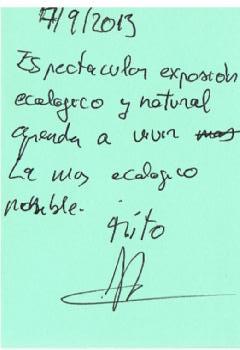 7/9/2013
Espectacular exposición
ecologico y natural
aprenda a vivir mas
La mas ecologico
posible.